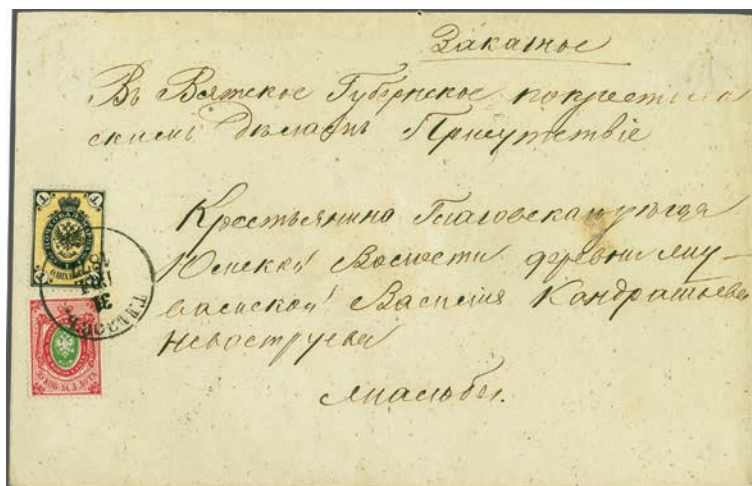 Заказное
Въ Вятское Губернское по крестьян
скимъ дѣламъ Присутствіе
Крестьянина Глазовскаго уѣзда
Юмской Волости деревни
Василия Кандратьева
Невоструева
жалобы.
1
ГЛАЗОВЪ
31